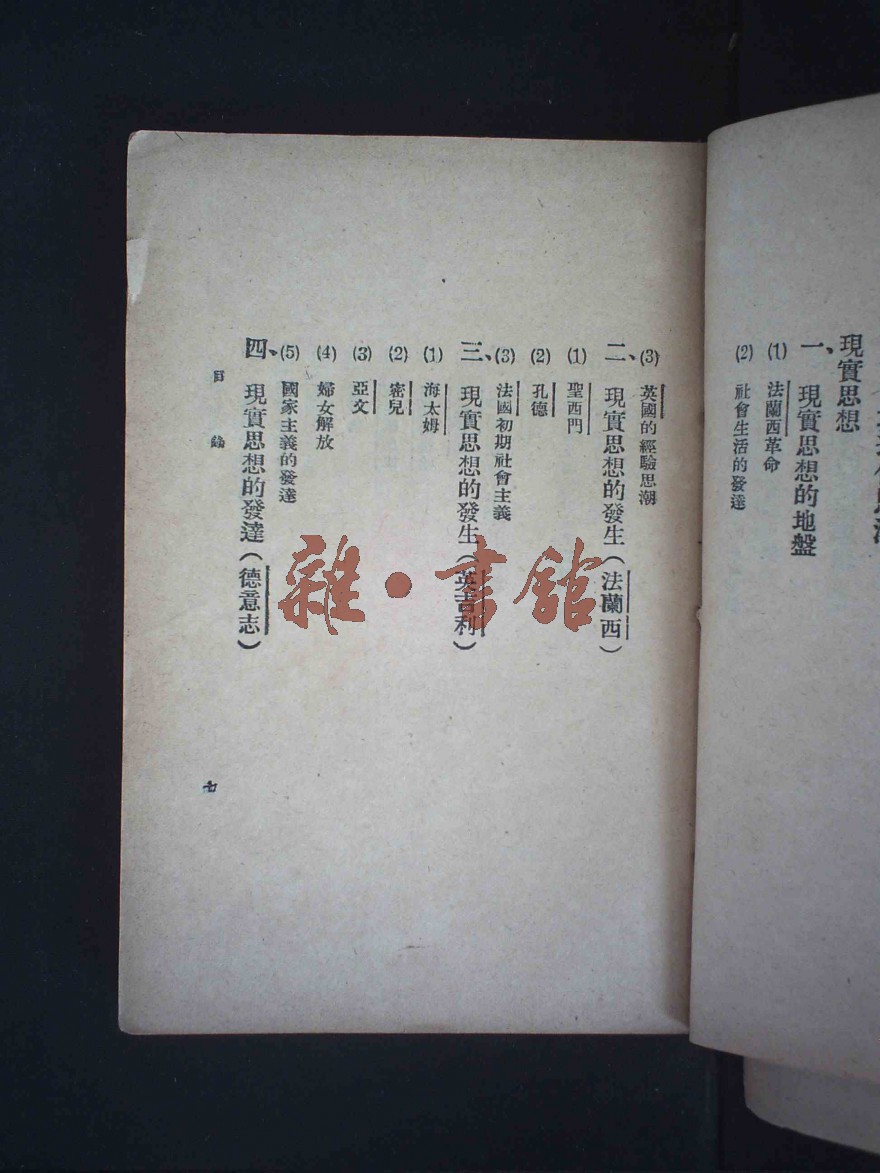 現實思想
一、現實思想的地盤
(1) 法蘭西革命
(2) 社會生活的發達
(3) 英國的經驗思潮
二、現實思想的發生(法蘭西)
(1) 聖西門
(2) 孔德
(3) 法國初期社會主義
三、現實思想的發生(英吉利)
(1) 海太姆
(2) 密兒
(3) 亞文
(4) 婦女解放
(5) 國家主義的發達
四、現實思想的發達(德意志)
目錄
七
雜·書館